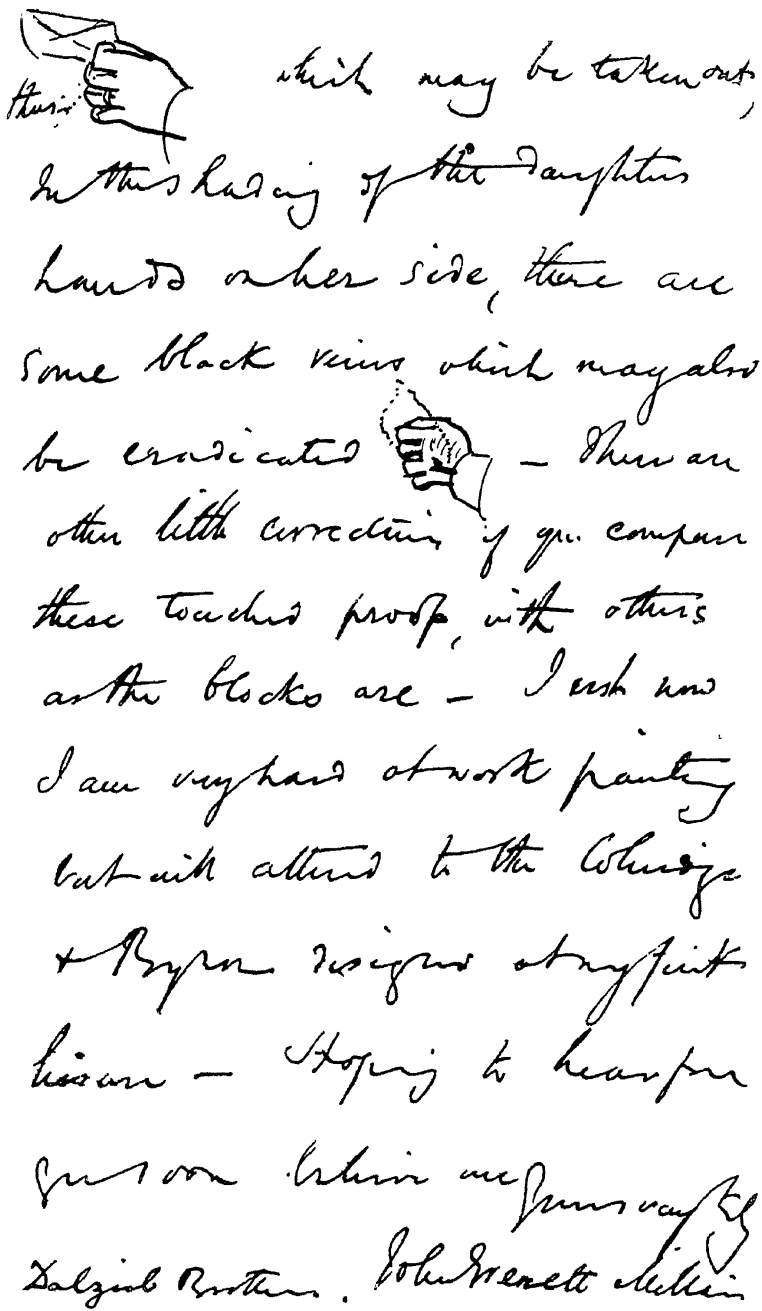 which may be taken out,
thus
In the shading of the daughters
hands on her side, there are
some black veins which may also
be eradicated — There are
other little corrections if you compare
these touched proofs, with others
as the blocks are — Just now
I am very hard at work painting
but will attend to the Coleridge
& Byron designs at my first
leisure — Hoping to hear from
you soon believe me
Yours very truly
Dalziel Brothers. John Everett Millais